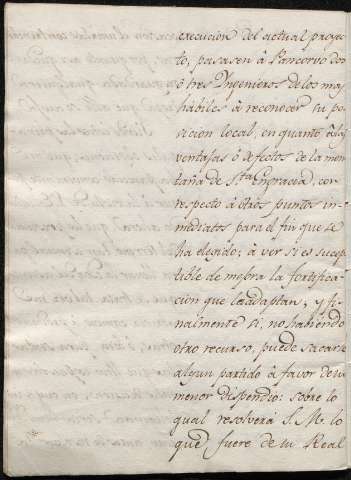 execucion del actual proyec-
to, pasasen à Pancorvo dos
ò tres Ingenieros de los mas
habiles à reconocer su po-
sicion local, en quanto à las
ventajas ò defectos de la mon-
taña de S.ta Engracia, con
respecto à otros puntos in-
mediatos para el fin que se
ha elegido; à ver si es suscep-
tible de mejora la fortifica-
cion que le adaptan; y fi-
nalmente si, no habiendo
otro recurso, puede sacarse
algun partido à favor de un
menor dispendio: sobre lo
qual resolverà S. M. lo
que fuere de su Real